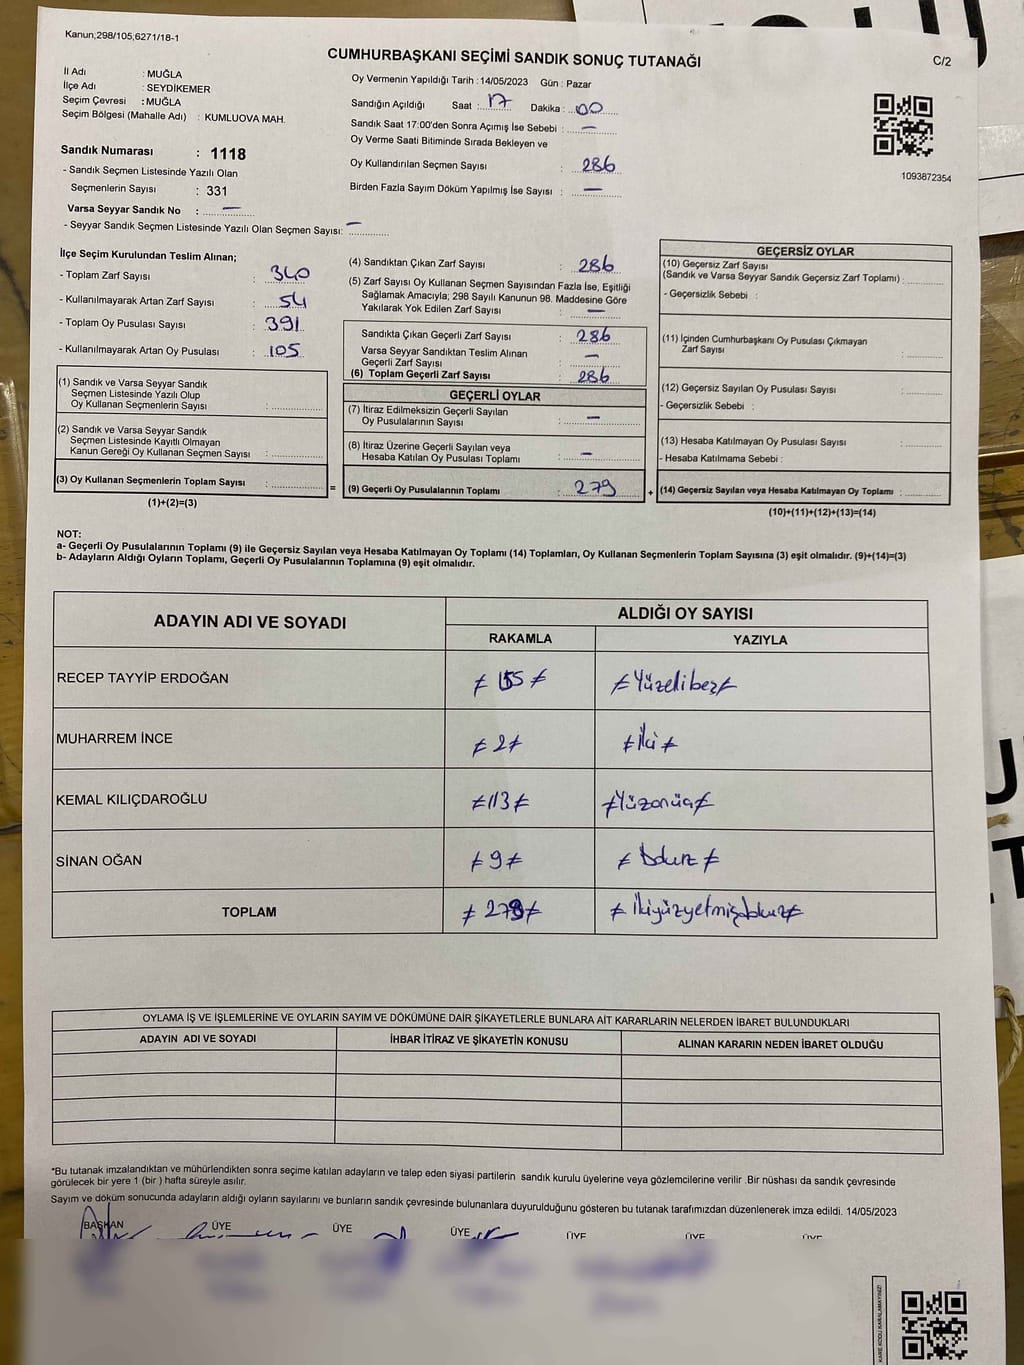 Kanun;298/105;6271/18-1
CUMHURBAŞKANI SEÇİMİ SANDIK SONUÇ TUTANAĞI
C/2
İl Adı : MUĞLA
İlçe Adı : SEYDİKEMER
Seçim Çevresi : MUĞLA
Seçim Bölgesi (Mahalle Adı) : KUMLUOVA MAH.
Sandık Numarası : 1118
- Sandık Seçmen Listesinde Yazılı Olan
Seçmenlerin Sayısı : 331
Varsa Seyyar Sandık No : —
- Seyyar Sandık Seçmen Listesinde Yazılı Olan Seçmen Sayısı: —
Oy Vermenin Yapıldığı Tarih : 14/05/2023 Gün : Pazar
Sandığın Açıldığı Saat : 17 Dakika : 00
Sandık Saat 17:00'den Sonra Açımış İse Sebebi : —
Oy Verme Saati Bitiminde Sırada Bekleyen ve
Oy Kullandırılan Seçmen Sayısı : 286
Birden Fazla Sayım Döküm Yapılmış İse Sayısı : —
1093872354
İlçe Seçim Kurulundan Teslim Alınan;
- Toplam Zarf Sayısı : 340
- Kullanılmayarak Artan Zarf Sayısı : 54
- Toplam Oy Pusulası Sayısı : 391
- Kullanılmayarak Artan Oy Pusulası : 105
(1) Sandık ve Varsa Seyyar Sandık
Seçmen Listesinde Yazılı Olup
Oy Kullanan Seçmenlerin Sayısı :
(2) Sandık ve Varsa Seyyar Sandık
Seçmen Listesinde Kayıtlı Olmayan
Kanun Gereği Oy Kullanan Seçmen Sayısı :
(3) Oy Kullanan Seçmenlerin Toplam Sayısı : =
(1)+(2)=(3)
(4) Sandıktan Çıkan Zarf Sayısı : 286
(5) Zarf Sayısı Oy Kullanan Seçmen Sayısından Fazla İse, Eşitliği
Sağlamak Amacıyla; 298 Sayılı Kanunun 98. Maddesine Göre
Yakılarak Yok Edilen Zarf Sayısı : —
Sandıkta Çıkan Geçerli Zarf Sayısı : 286
Varsa Seyyar Sandıktan Teslim Alınan
Geçerli Zarf Sayısı : —
(6) Toplam Geçerli Zarf Sayısı : 286
GEÇERLİ OYLAR
(7) İtiraz Edilmeksizin Geçerli Sayılan
Oy Pusulalarının Sayısı : —
(8) İtiraz Üzerine Geçerli Sayılan veya
Hesaba Katılan Oy Pusulası Toplamı : —
(9) Geçerli Oy Pusulalarının Toplamı : 279 +
GEÇERSİZ OYLAR
(10) Geçersiz Zarf Sayısı
(Sandık ve Varsa Seyyar Sandık Geçersiz Zarf Toplamı) :
- Geçersizlik Sebebi :
(11) İçinden Cumhurbaşkanı Oy Pusulası Çıkmayan
Zarf Sayısı :
(12) Geçersiz Sayılan Oy Pusulası Sayısı :
- Geçersizlik Sebebi :
(13) Hesaba Katılmayan Oy Pusulası Sayısı :
- Hesaba Katılmama Sebebi :
(14) Geçersiz Sayılan veya Hesaba Katılmayan Oy Toplamı :
(10)+(11)+(12)+(13)=(14)
NOT:
a- Geçerli Oy Pusulalarının Toplamı (9) ile Geçersiz Sayılan veya Hesaba Katılmayan Oy Toplamı (14) Toplamları, Oy Kullanan Seçmenlerin Toplam Sayısına (3) eşit olmalıdır. (9)+(14)=(3)
b- Adayların Aldığı Oyların Toplamı, Geçerli Oy Pusulalarının Toplamına (9) eşit olmalıdır.
ADAYIN ADI VE SOYADI ALDIĞI OY SAYISI
RAKAMLA YAZIYLA
RECEP TAYYİP ERDOĞAN ≠ 155 ≠ ≠ Yüzelibeş ≠
MUHARREM İNCE ≠ 2 ≠ ≠ İki ≠
KEMAL KILIÇDAROĞLU ≠ 113 ≠ ≠ Yüzonüç ≠
SİNAN OĞAN ≠ 9 ≠ ≠ Dokuz ≠
TOPLAM ≠ 279 ≠ ≠ İkiyüzyetmişdokuz ≠
OYLAMA İŞ VE İŞLEMLERİNE VE OYLARIN SAYIM VE DÖKÜMÜNE DAİR ŞİKAYETLERLE BUNLARA AİT KARARLARIN NELERDEN İBARET BULUNDUKLARI
ADAYIN ADI VE SOYADI İHBAR İTİRAZ VE ŞİKAYETİN KONUSU ALINAN KARARIN NEDEN İBARET OLDUĞU
*Bu tutanak imzalandıktan ve mühürlendikten sonra seçime katılan adayların ve talep eden siyasi partilerin sandık kurulu üyelerine veya gözlemcilerine verilir .Bir nüshası da sandık çevresinde
görülecek bir yere 1 (bir ) hafta süreyle asılır.
Sayım ve döküm sonucunda adayların aldığı oyların sayılarını ve bunların sandık çevresinde bulunanlara duyurulduğunu gösteren bu tutanak tarafımızdan düzenlenerek imza edildi. 14/05/2023
BAŞKAN ÜYE ÜYE ÜYE ÜYE ÜYE ÜYE
KARE KODU KARALAMAYINIZ!